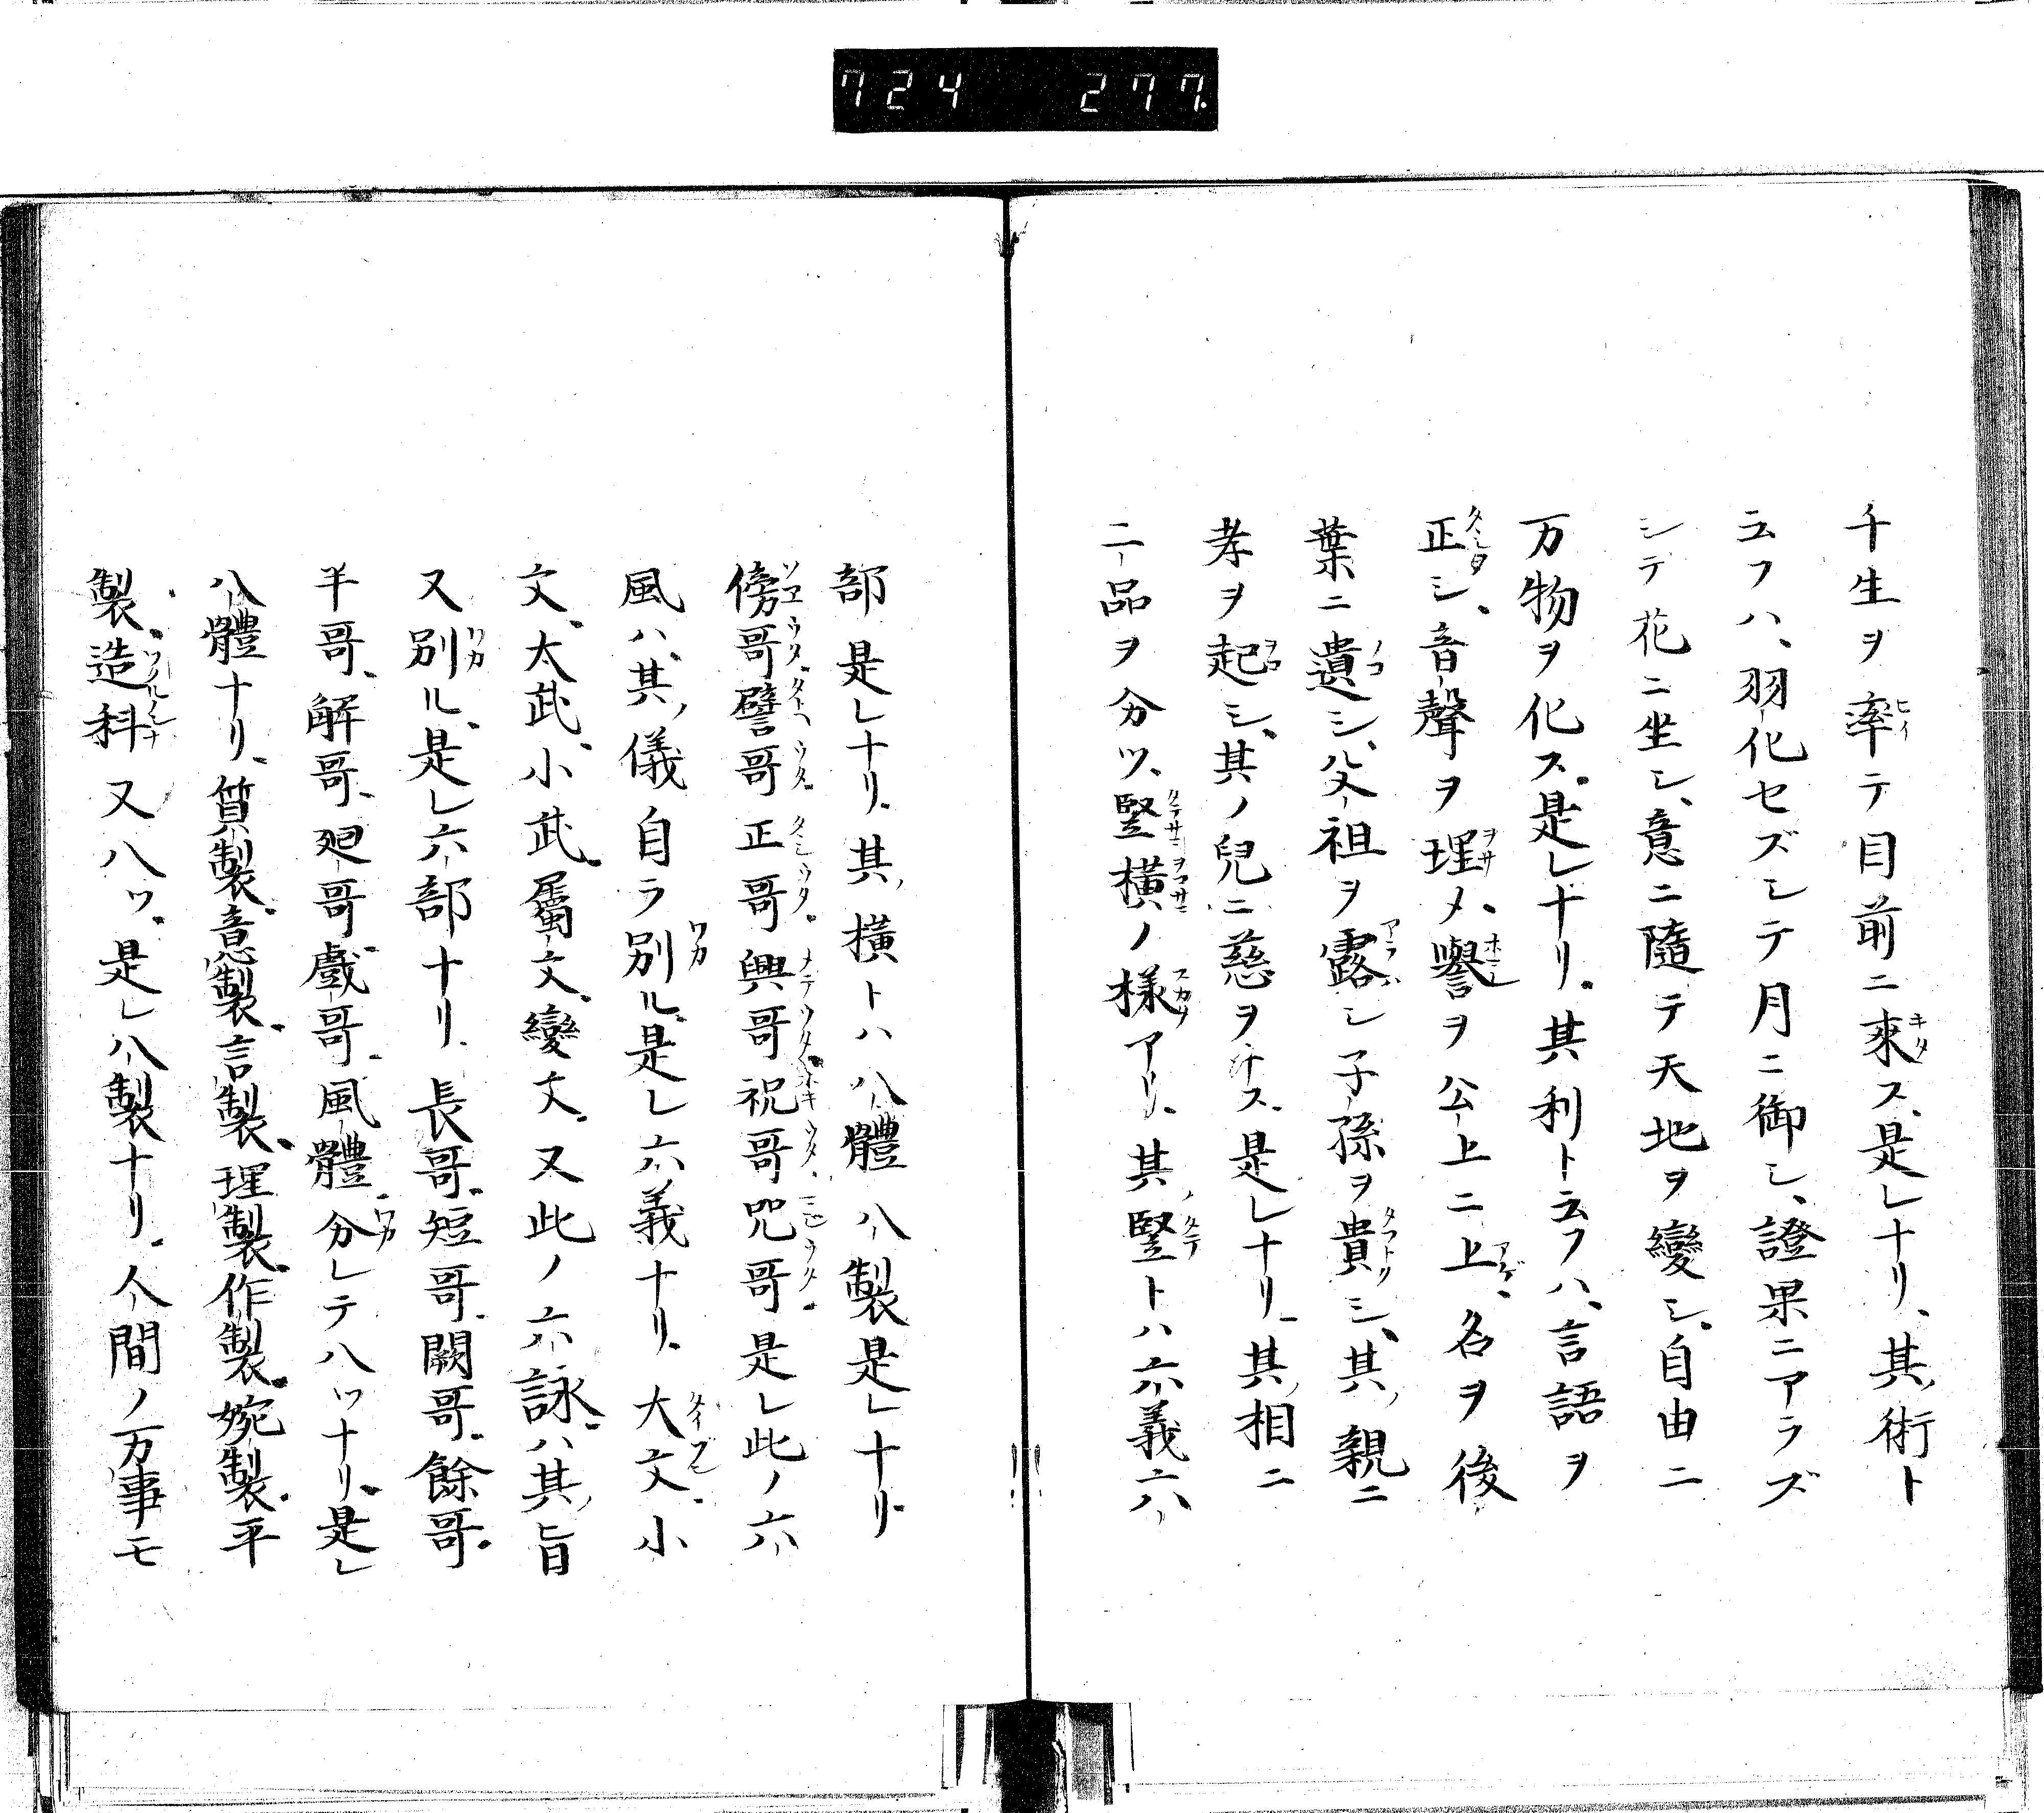 724 277.
千生ヲ率テ目前ニ來ス、是レナリ、其ノ術ト
云フハ、羽化セズシテ月ニ御シ、證果ニアラズ
シテ花ニ坐シ、意ニ隨テ天地ヲ變シ、自由ニ
万物ヲ化ス。是レナリ。其利ト云フハ、言語ヲ
正シ、音聲ヲ理メ、譽ヲ公上ニ上、名ヲ後
葉ニ遺シ、父祖ヲ露シ子孫ヲ貴シ、其ノ親ニ
孝ヲ起シ、其ノ兒ニ慈ヲ ス、是レナリ、其ノ相ニ
二品ヲ分ツ、竪横ノ様アリ、其ノ竪トハ六義六
部是レナリ、其ノ横トハ八體八製是レナリ
傍哥譬哥正哥興哥祝哥咒哥是レ此ノ六
風ハ、其ノ儀自ラ別ル、是レ六義ナリ、大文、小
文、太武、小武、屬文、變文。又此ノ六詠ハ、其ノ旨
又別ル、是レ六部ナリ、長哥、短哥、闕哥、餘哥。
半哥、解哥、廻哥、戲哥、風體分レテ八ツナリ、是レ
八體ナリ、質製、意製、言製、理製、作製、婉製、平
製、造科又八ツ。是レ八製ナリ、人間ノ万事モ